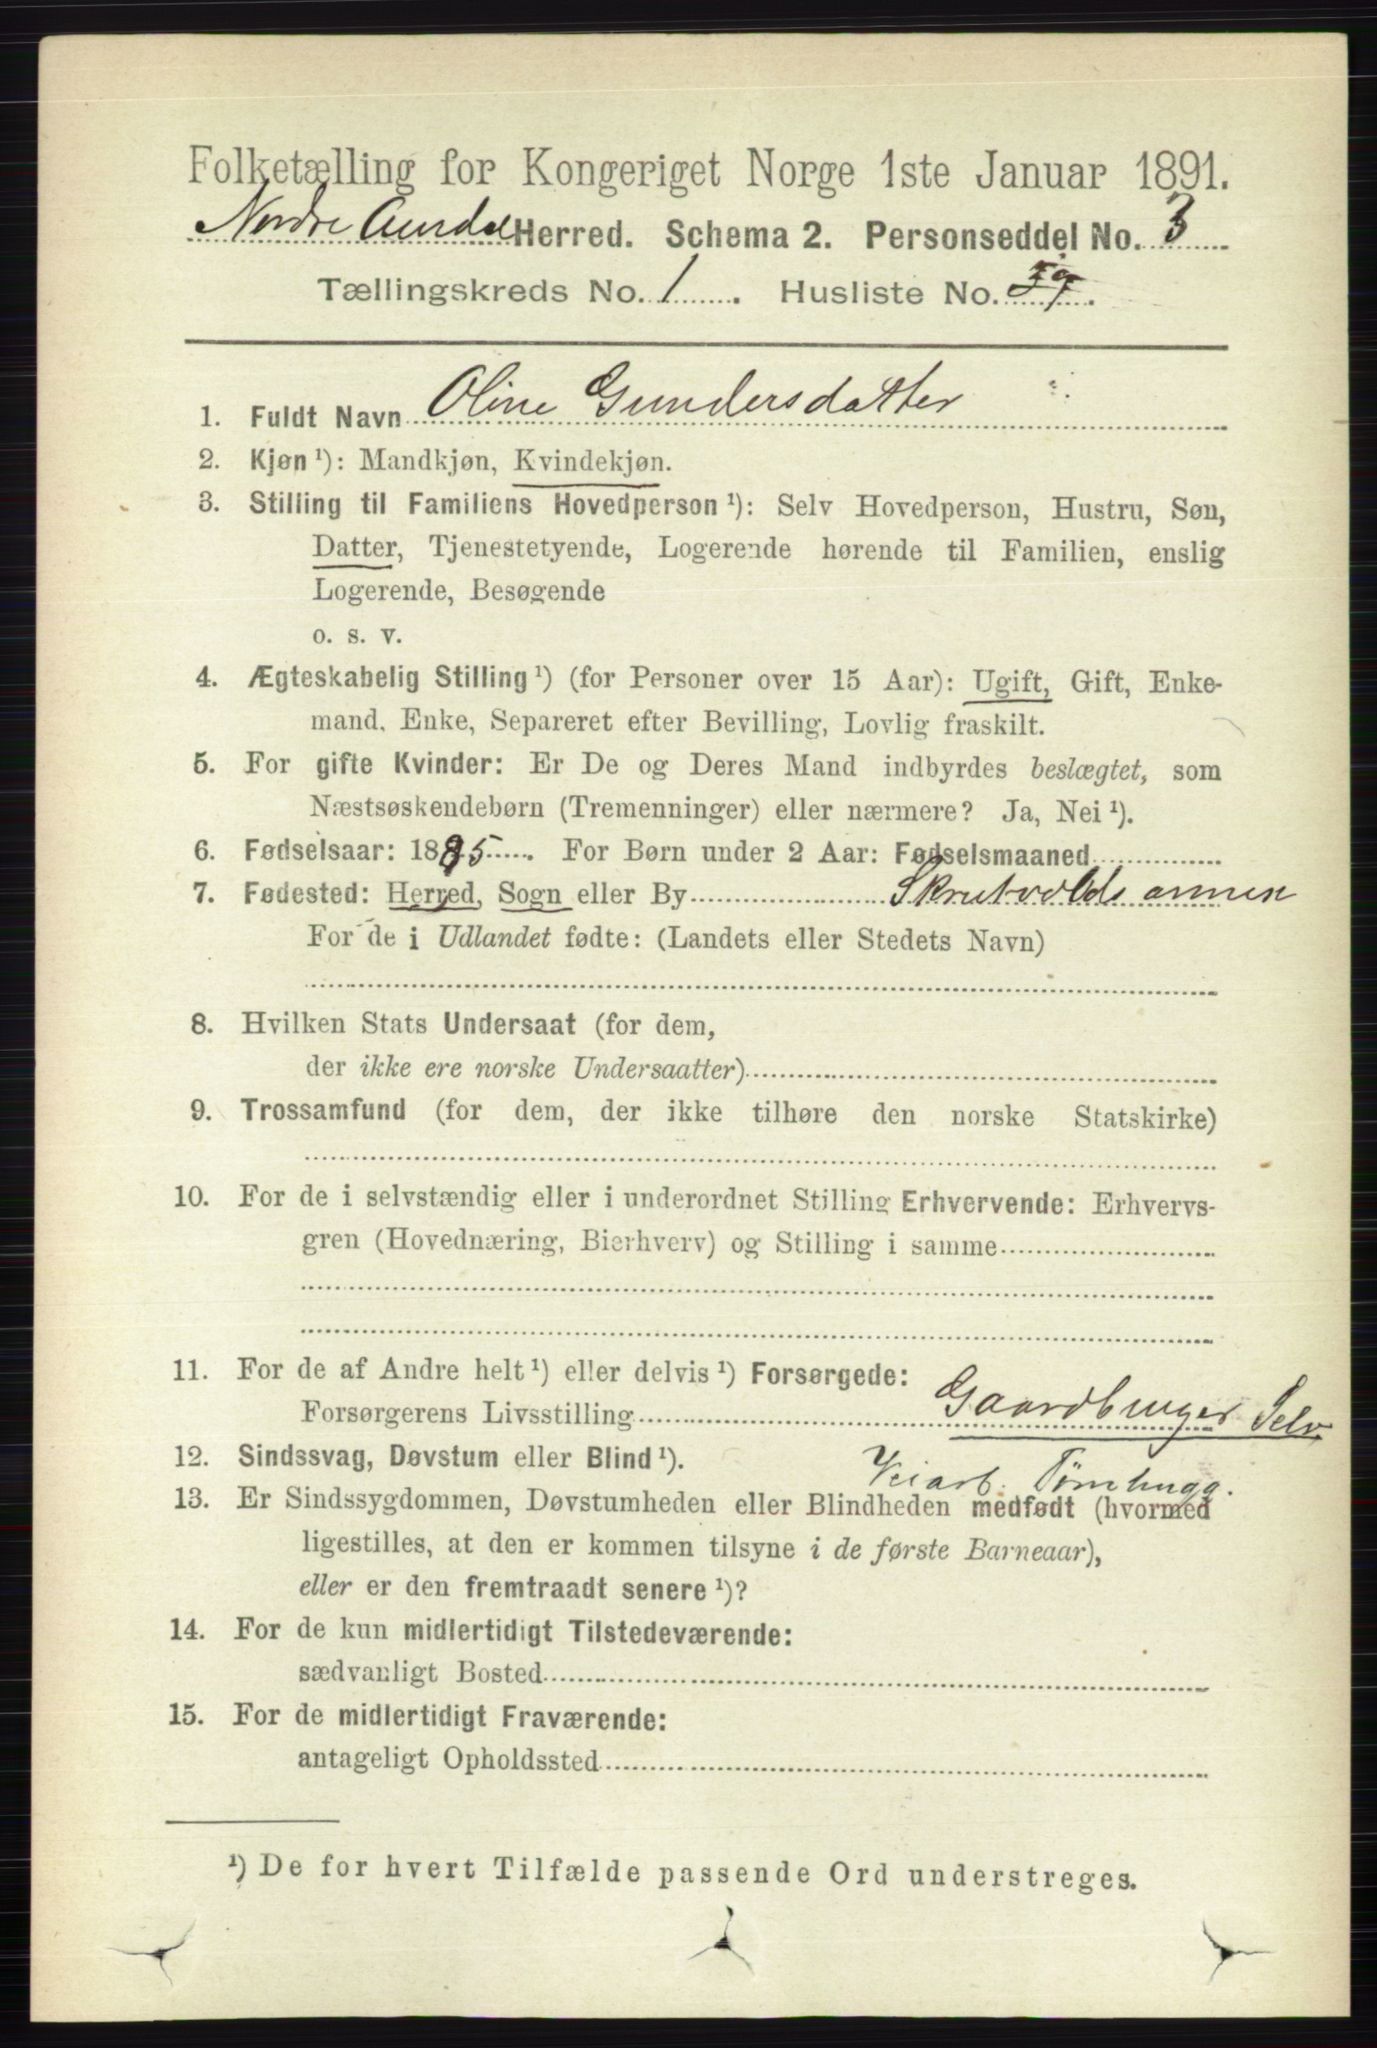 Folketælling for Kongeriget Norge 1ste Januar 1891.
Nordre Aurdal Herred. Schema 2. Personseddel No. 3
Tællingskreds No. 1. Husliste No. 59.
1. Fuldt Navn Oline Gundersdatter
2. Kjøn ¹): Mandkjøn, Kvindekjøn.
3. Stilling til Familiens Hovedperson ¹): Selv Hovedperson, Hustru, Søn,
Datter, Tjenestetyende, Logerende hørende til Familien, enslig
Logerende, Besøgende
o. s. v.
4. Ægteskabelig Stilling ¹) (for Personer over 15 Aar): Ugift, Gift, Enke-
mand, Enke, Separeret efter Bevilling, Lovlig fraskilt.
5. For gifte Kvinder: Er De og Deres Mand indbyrdes beslægtet, som
Næstsøskendebørn (Tremenninger) eller nærmere? Ja, Nei ¹).
6. Fødselsaar: 1885. For Børn under 2 Aar: Fødselsmaaned
7. Fødested: Herred, Sogn eller By Skrutvolds annex
For de i Udlandet fødte: (Landets eller Stedets Navn)
8. Hvilken Stats Undersaat (for dem,
der ikke ere norske Undersaatter)
9. Trossamfund (for dem, der ikke tilhøre den norske Statskirke)
10. For de i selvstændig eller i underordnet Stilling Erhvervende: Erhvervs-
gren (Hovednæring, Bierhverv) og Stilling i samme
11. For de af Andre helt ¹) eller delvis ¹) Forsørgede:
Forsørgerens Livsstilling Gaardbruger Selv
12. Sindssvag, Døvstum eller Blind ¹).
Veiarb. Tømhugg.
13. Er Sindssygdommen, Døvstumheden eller Blindheden medfødt (hvormed
ligestilles, at den er kommen tilsyne i de første Barneaar),
eller er den fremtraadt senere ¹)?
14. For de kun midlertidigt Tilstedeværende:
sædvanligt Bosted
15. For de midlertidigt Fraværende:
antageligt Opholdssted
¹) De for hvert Tilfælde passende Ord understreges.